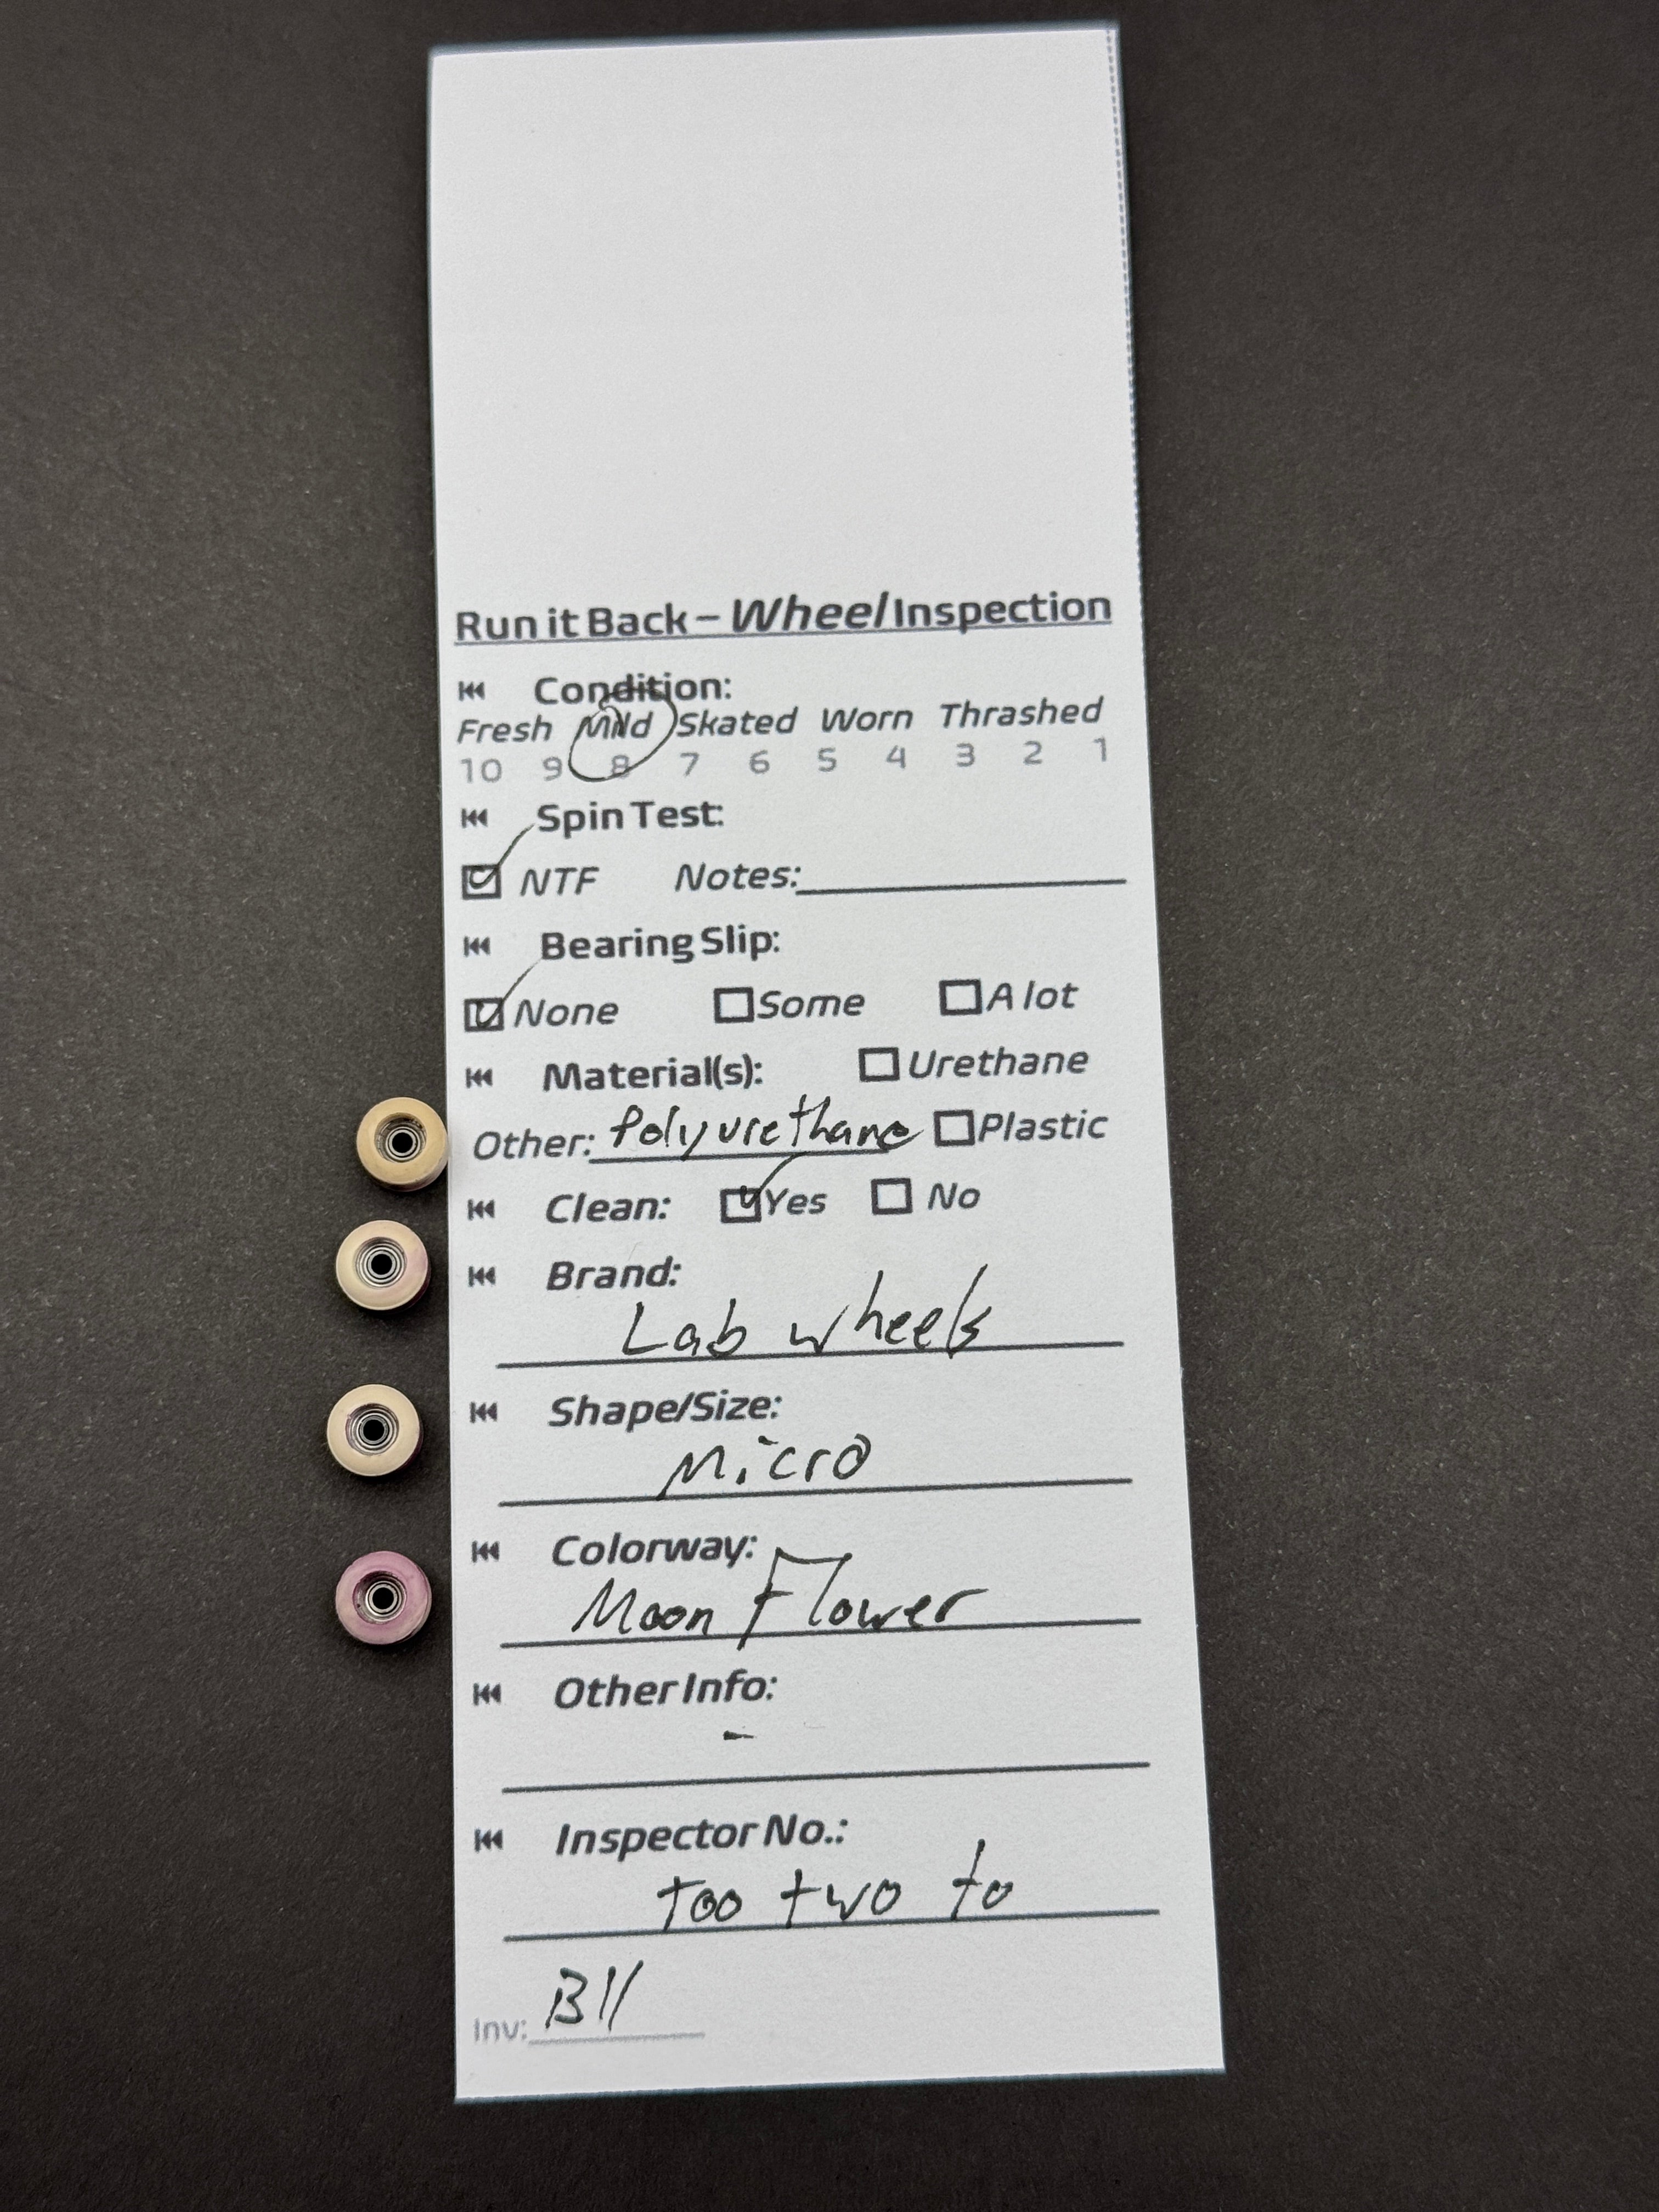 Run it Back – Wheel Inspection
Condition:
Fresh Mild Skated Worn Thrashed
10 9 8 7 6 5 4 3 2 1
Spin Test:
NTF Notes:
Bearing Slip:
None Some A lot
Material(s): Urethane
Other: Polyurethane Plastic
Clean: Yes No
Brand:
Lab wheels
Shape/Size:
Micro
Colorway:
Moon Flower
Other Info:
-
Inspector No.:
Too two to
Inv: B11